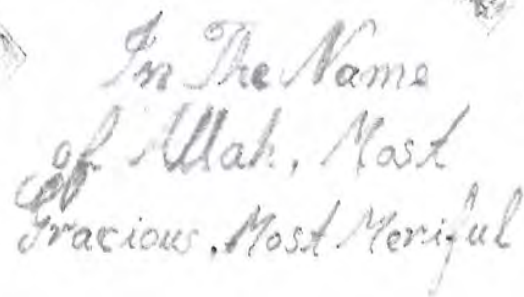 In The Name
of Allah, Most
Gracious, Most Meriful